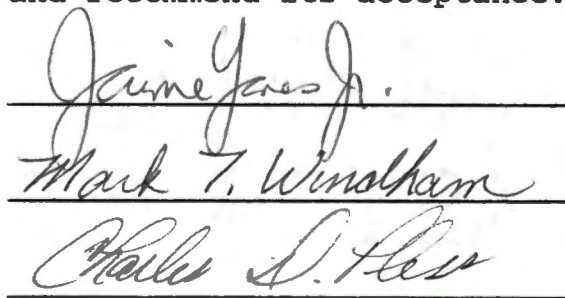 and recommend its acceptance.
Jaime Yanes Jr.
Mark T. Windham
Charles D. Pless